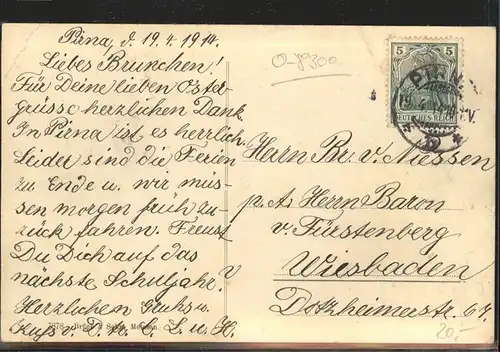 Pirna, d. 19.4.1914.
Liebes Brunchen!
Für Deine lieben Oster-
grüsse herzlichen Dank.
In Pirna ist es herrlich.
Leider sind die Ferien
zu Ende u. wir müs-
sen morgen früh zu-
rück fahren. Freust
Du Dich auf das
nächste Schuljahr?
Herzlichen Gruhs u.
Kuss v. D. tr. C. L. u. H.
O-8300
5 5
DEUTSCHES REICH
PIRNA
19.4.14
Herrn Br. v. Niessen
p. A. Herrn Baron
v. Fürstenberg
Wiesbaden
Dotzheimerstr. 67.
20.-